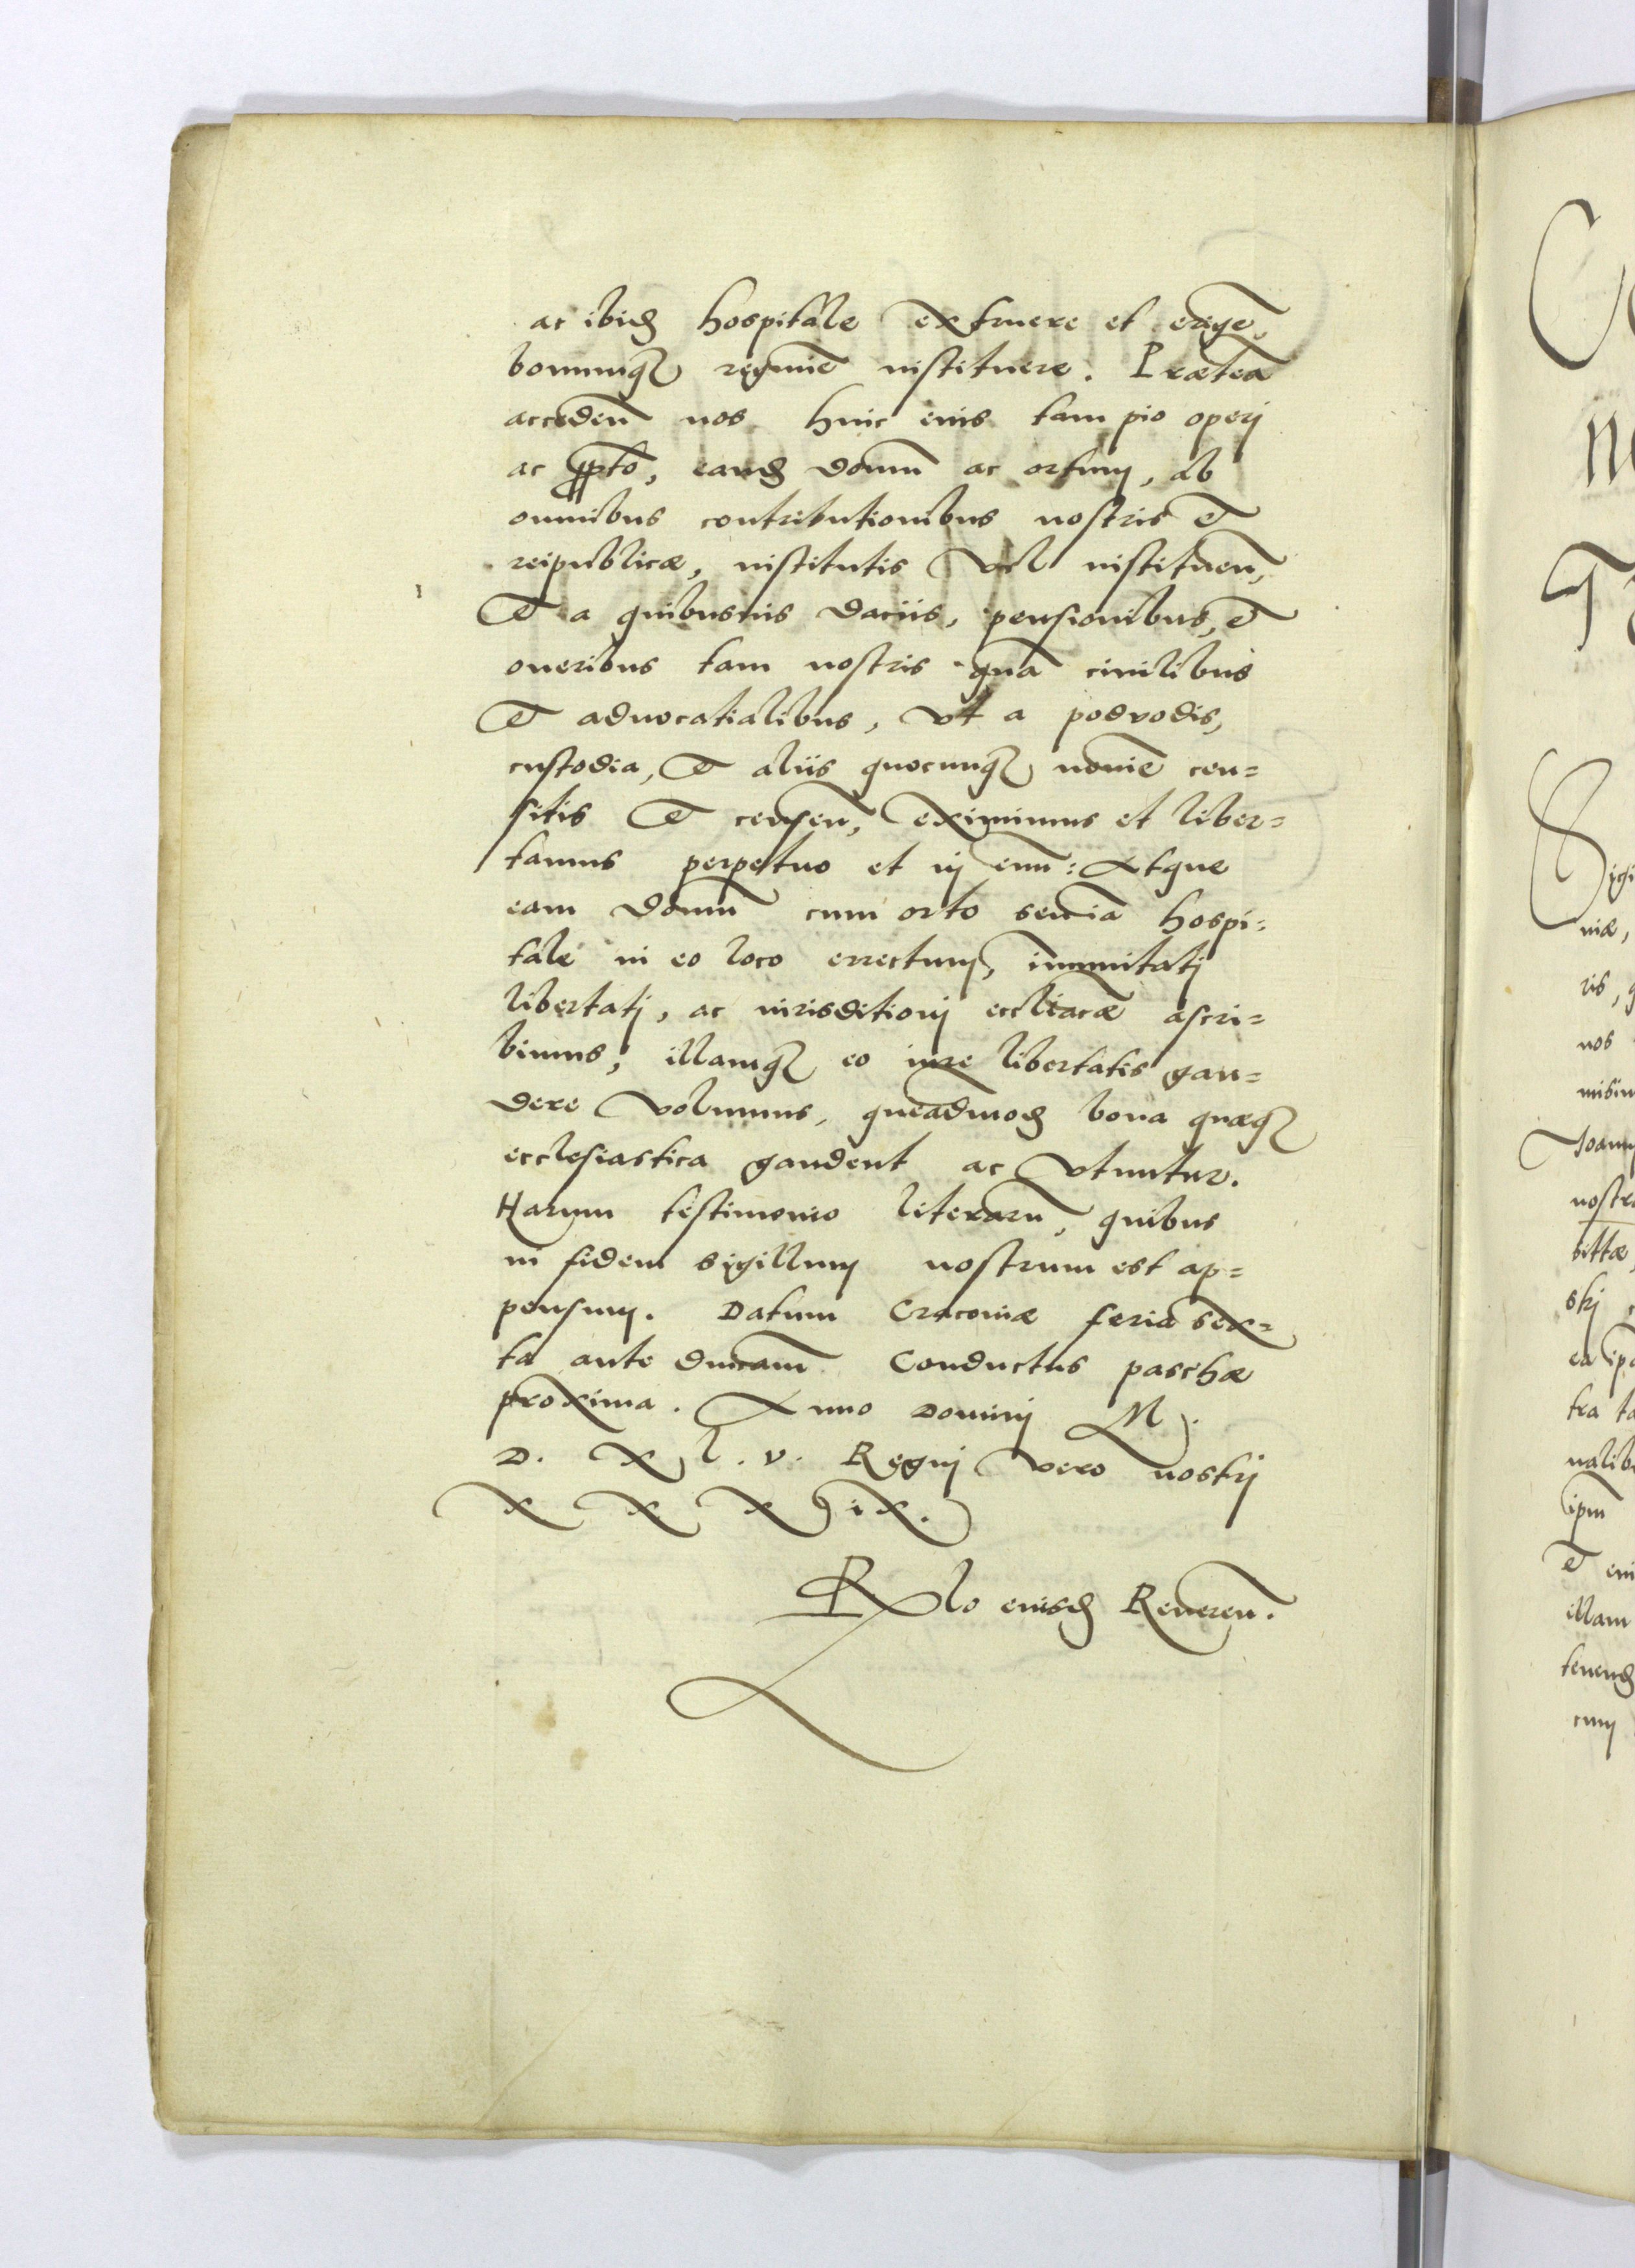 ac ibid hospitale extruere et erige,
bonumq regimē instituere. Præteā
acceden̄ nos huic eius tam pio operi
ac ppto, eand domū ac ortum, ab
omnibus contributionibus nostris et
reipublicæ, institutis vel instituen̄,
et a quibusuis daciis, pensionibus, et
oneribus tam nostris quā ciuilibus
et aduocatialibus, vt a podvodis,
custodia, et aliis quocunq nomīe cen=
sitis et censen̄, eximimus et liber=
tamus perpetuo et in euū: Atque
eam domū cum orto seu iā hospi=
tale in eo loco errectum, immunitati
libertati, ac iurisditioni eccliacæ ascri=
bimus, illamq eo iure libertatis gau=
dere volumus, queādmod bona quæq
ecclesiastica gaudent ac vtuntur.
Harum testimonio literarū, quibus
in fidem sigillum nostrum est ap=
pensum. Datum Cracouiæ feria sex=
ta ante dnicam Conductus paschæ
proxima. Anno Domini M.
D. X L. V. Regni vero nostri
X X X ix.
Rlo eiusd Reueren̄.
nos
illam